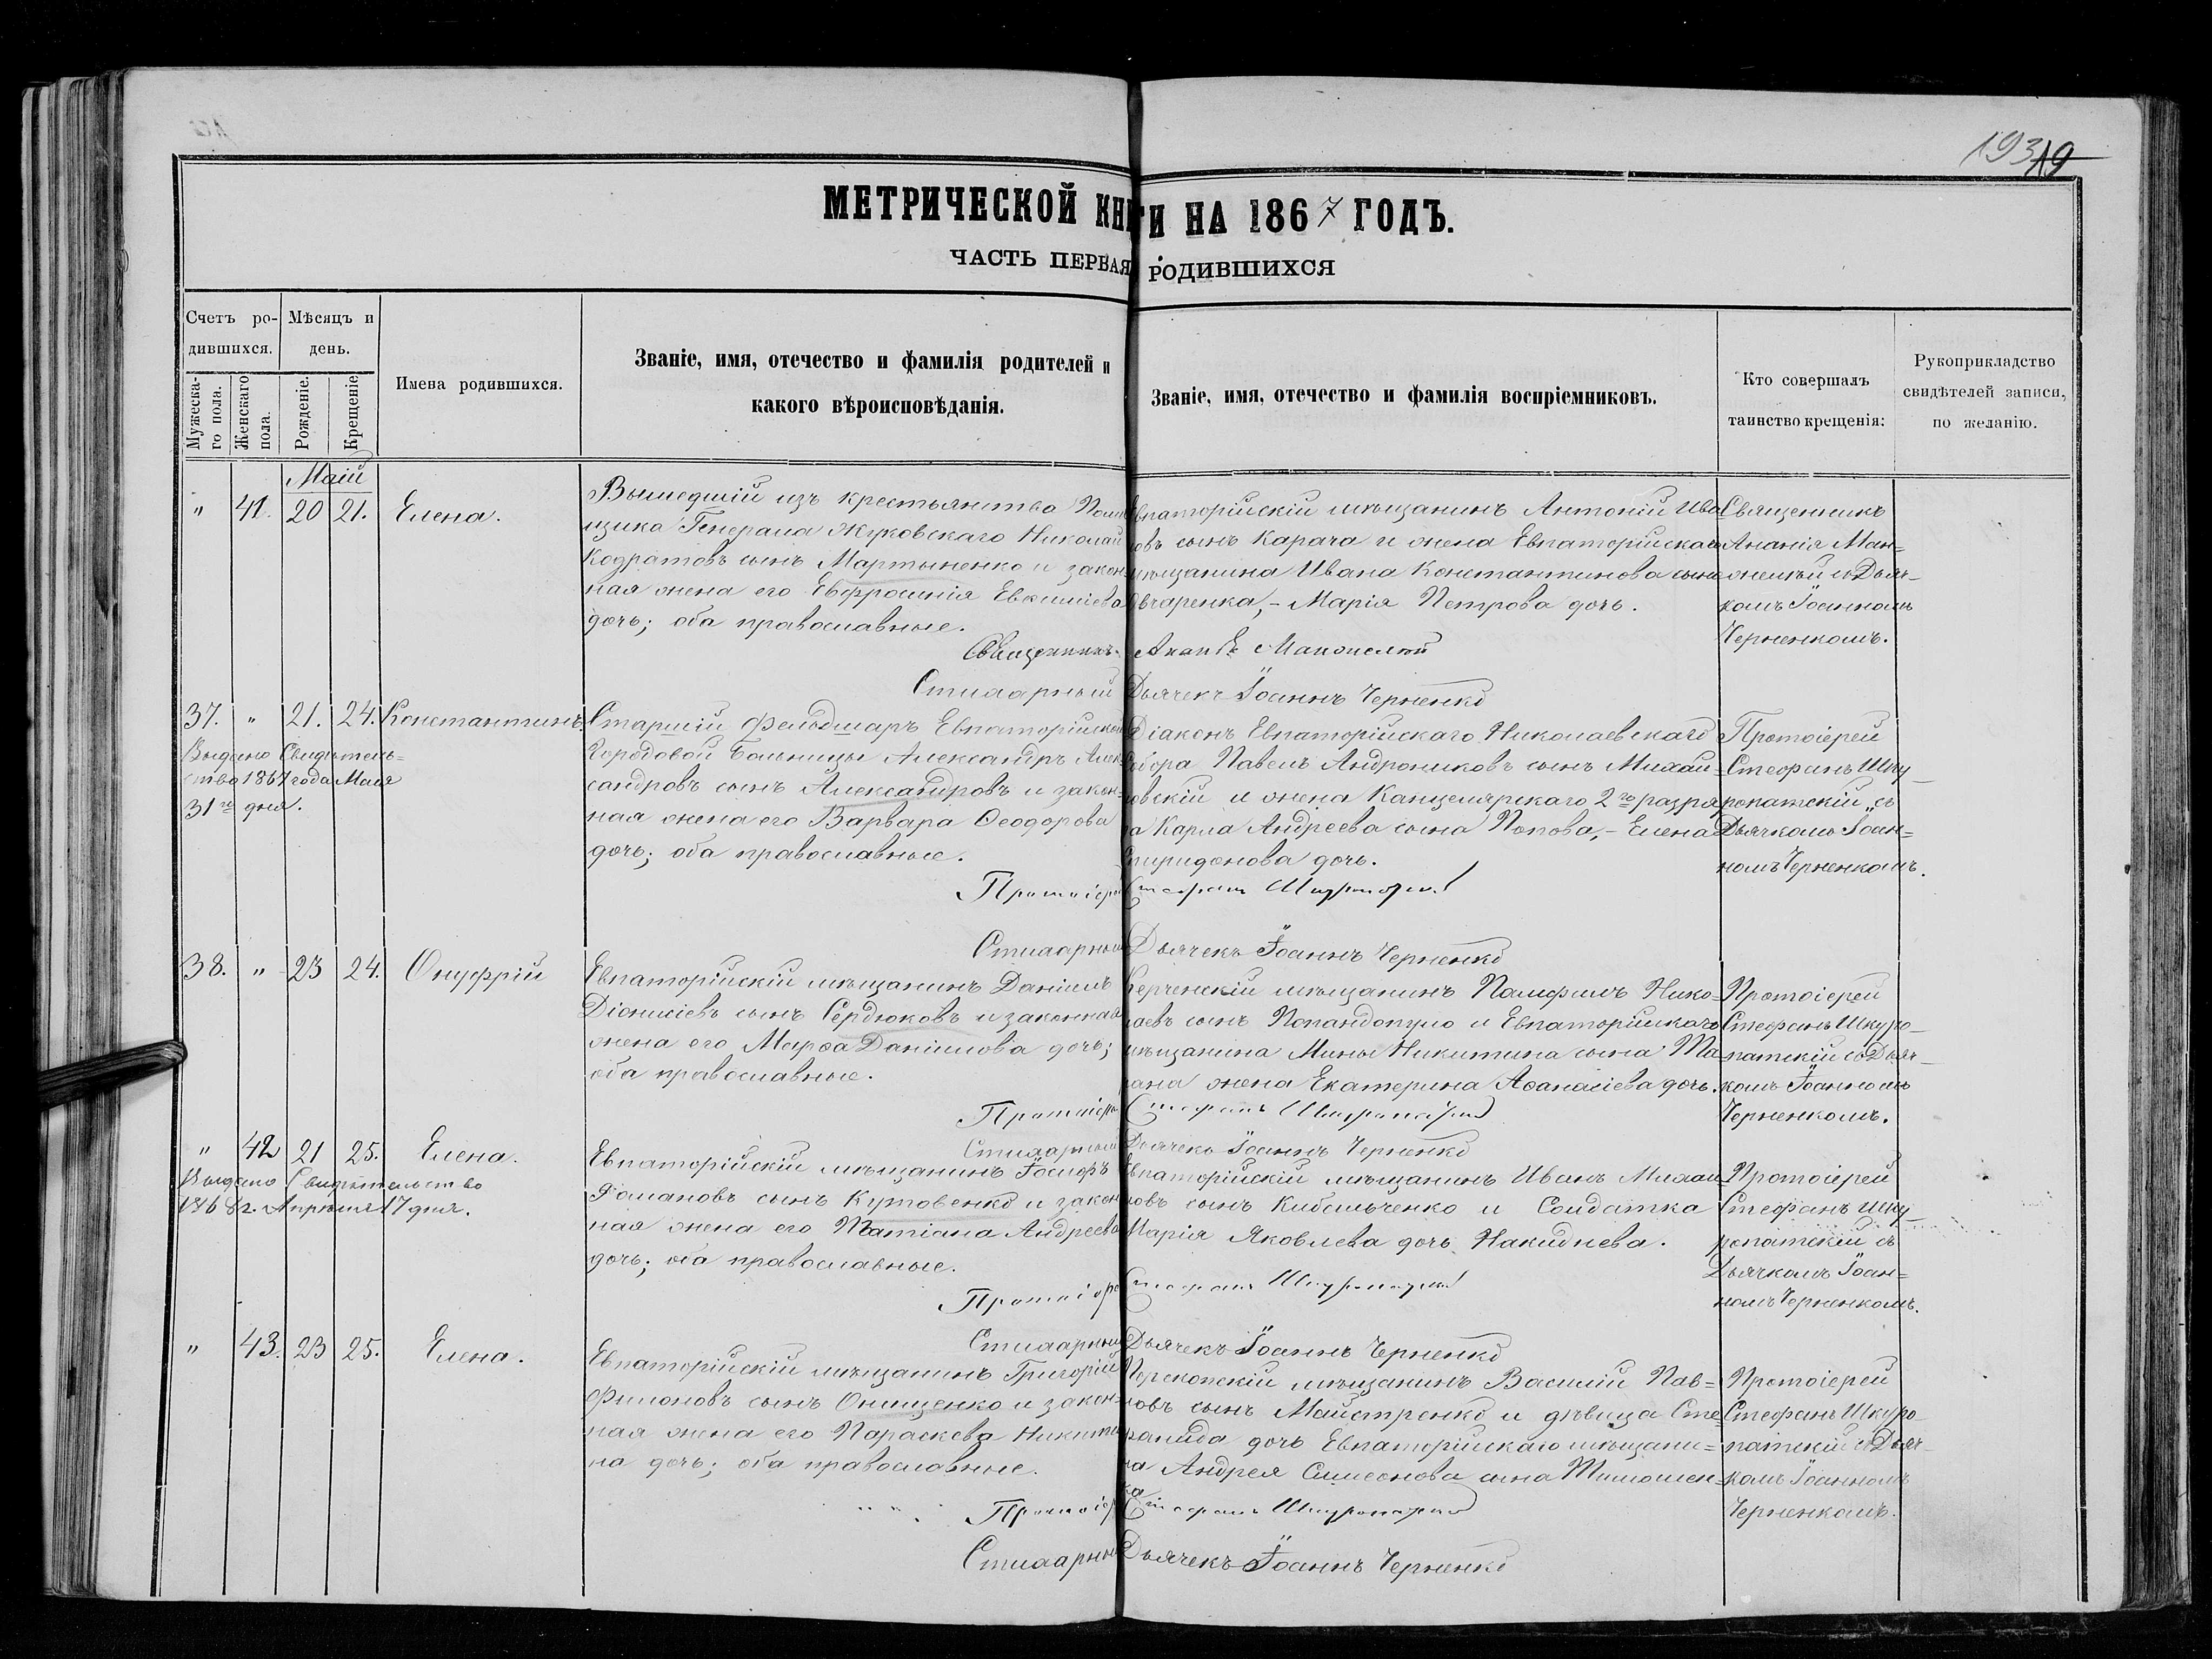 193 19
МЕТРИЧЕСКОЙ КНИГИ НА 1867 ГОДЪ.
ЧАСТЬ ПЕРВАЯ РОДИВШИХСЯ
Счетъ ро-
дившихся.
Мужеска-
го пола.
Женскаго
пола.
Мѣсяцъ и
день.
Рожденіе.
Крещеніе
Имена родившихся.
Званіе, имя, отечество и фамилія родителей и
какого вѣроисповѣданія.
Званіе, имя, отечество и фамилія воспріемниковъ.
Кто совершалъ
таинство крещенія:
Рукоприкладство
свидѣтелей записи,
по желанію.
Маій
" 41. 20 21. Елена.
Вышедшій изъ крестьянства Помѣ
щика Генерала Жуковскаго Николай
Кодратовъ сынъ Мартыненко и закон-
ная жена его Евфросинія Евсиміева
дочь; оба православные.
Евпаторійскій мѣщанинъ Антоній Ива
новъ сынъ Карача и жена Евпаторійскаго
мѣщанина Ивана Константинова сына
Овчаренка,- Марія Петрова дочь.
Священникъ
Ананія Ман=
желѣй съ Дьяч-
комъ Іоанномъ
Черненкомъ.
Священникъ Ананія
Стихарный Дьячекъ Іоаннъ Черненко
37. " 21. 24. Константинъ.
Выдано Свидѣтель=
ство 1867 года Мая
31го дня.
Старшій Фельдшаръ Евпаторійской
Городовой Больницы Александръ Алек
сандровъ сынъ Александровъ и закон-
ная жена его Варвара Ѳеодорова
дочь; оба православные.
Діаконъ Евпаторійскаго Николаевскаго
Собора Павелъ Андрониковъ сынъ Михай-
ловскій и жена Канцелярскаго 2го разря
да Карла Андреева сына Попова,- Елена
Спиридонова дочь.
Протоіерей
Стефанъ Шку-
ропатскій съ
Дьячкомъ Іоан=
номъ Черненкомъ.
Протоіерей Стефанъ Шкуропатскій
Стихарный Дьячекъ Іоаннъ Черненко
38. " 23 24. Онуфрій
Евпаторійскій мѣщанинъ Даніилъ
Діонисіевъ сынъ Сердюковъ и законная
жена его Марѳа Даніилова дочь;
оба православные.
Керченскій мѣщанинъ Памфилъ Нико-
лаевъ сынъ Попандопуло и Евпаторійскаго
мѣщанина Мины Никитина сына Та-
рана жена Екатерина Аѳанасіева дочь.
Протоіерей
Стефанъ Шкуро-
патскій съ Дьяч-
комъ Іоанномъ
Черненкомъ.
Протоіерей Стефанъ Шкуропатскій
Стихарный Дьячекъ Іоаннъ Черненко
" 42 21 25. Елена.
Выдано Свидѣтельство
1868 г. Апрѣля 17 дня.
Евпаторійскій мѣщанинъ Іосифъ
Романовъ сынъ Кутовенко и закон
ная жена его Татіана Андреева
дочь; оба православные.
Евпаторійскій мѣщанинъ Иванъ Михаи
ловъ сынъ Кибальченко и Солдатка
Марія Яковлева дочь Накиднева.
Протоіерей
Стефанъ Шку-
ропатскій съ
Дьячкомъ Іоан=
номъ Черненкомъ.
Протоіерей Стефанъ Шкуропатскій
Стихарный Дьячекъ Іоаннъ Черненко
" 43. 23 25. Елена.
Евпаторійскій мѣщанинъ Григорій
Филоновъ сынъ Онищенко и закон-
ная жена его Параскева Никити
на дочь; оба православные.
Перекопскій мѣщанинъ Василій Пав=
ловъ сынъ Майстренко и дѣвица Сте
ранида дочь Евпаторійскаго мѣщани=
на Андрея Симеонова сына Тимошен-
ка
Протоіерей
Стефанъ Шкуро-
патскій съ Дьяч-
комъ Іоанномъ
Черненкомъ.
Протоіерей Стефанъ Шкуропатскій
Стихарный Дьячекъ Іоаннъ Черненко